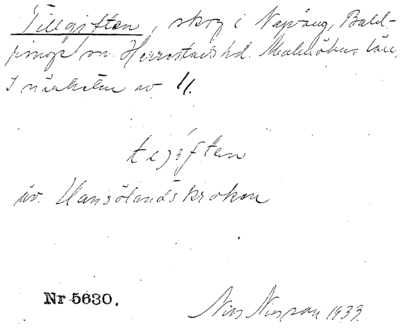 Tillgiften, skog i Navröng, Bald-
ringe sn. Herrestads hd. Malmöhus län,
I närheten av
tejiften
äv. Hansölandskroken
Nr 5630.
Nils Nilsson 1933.